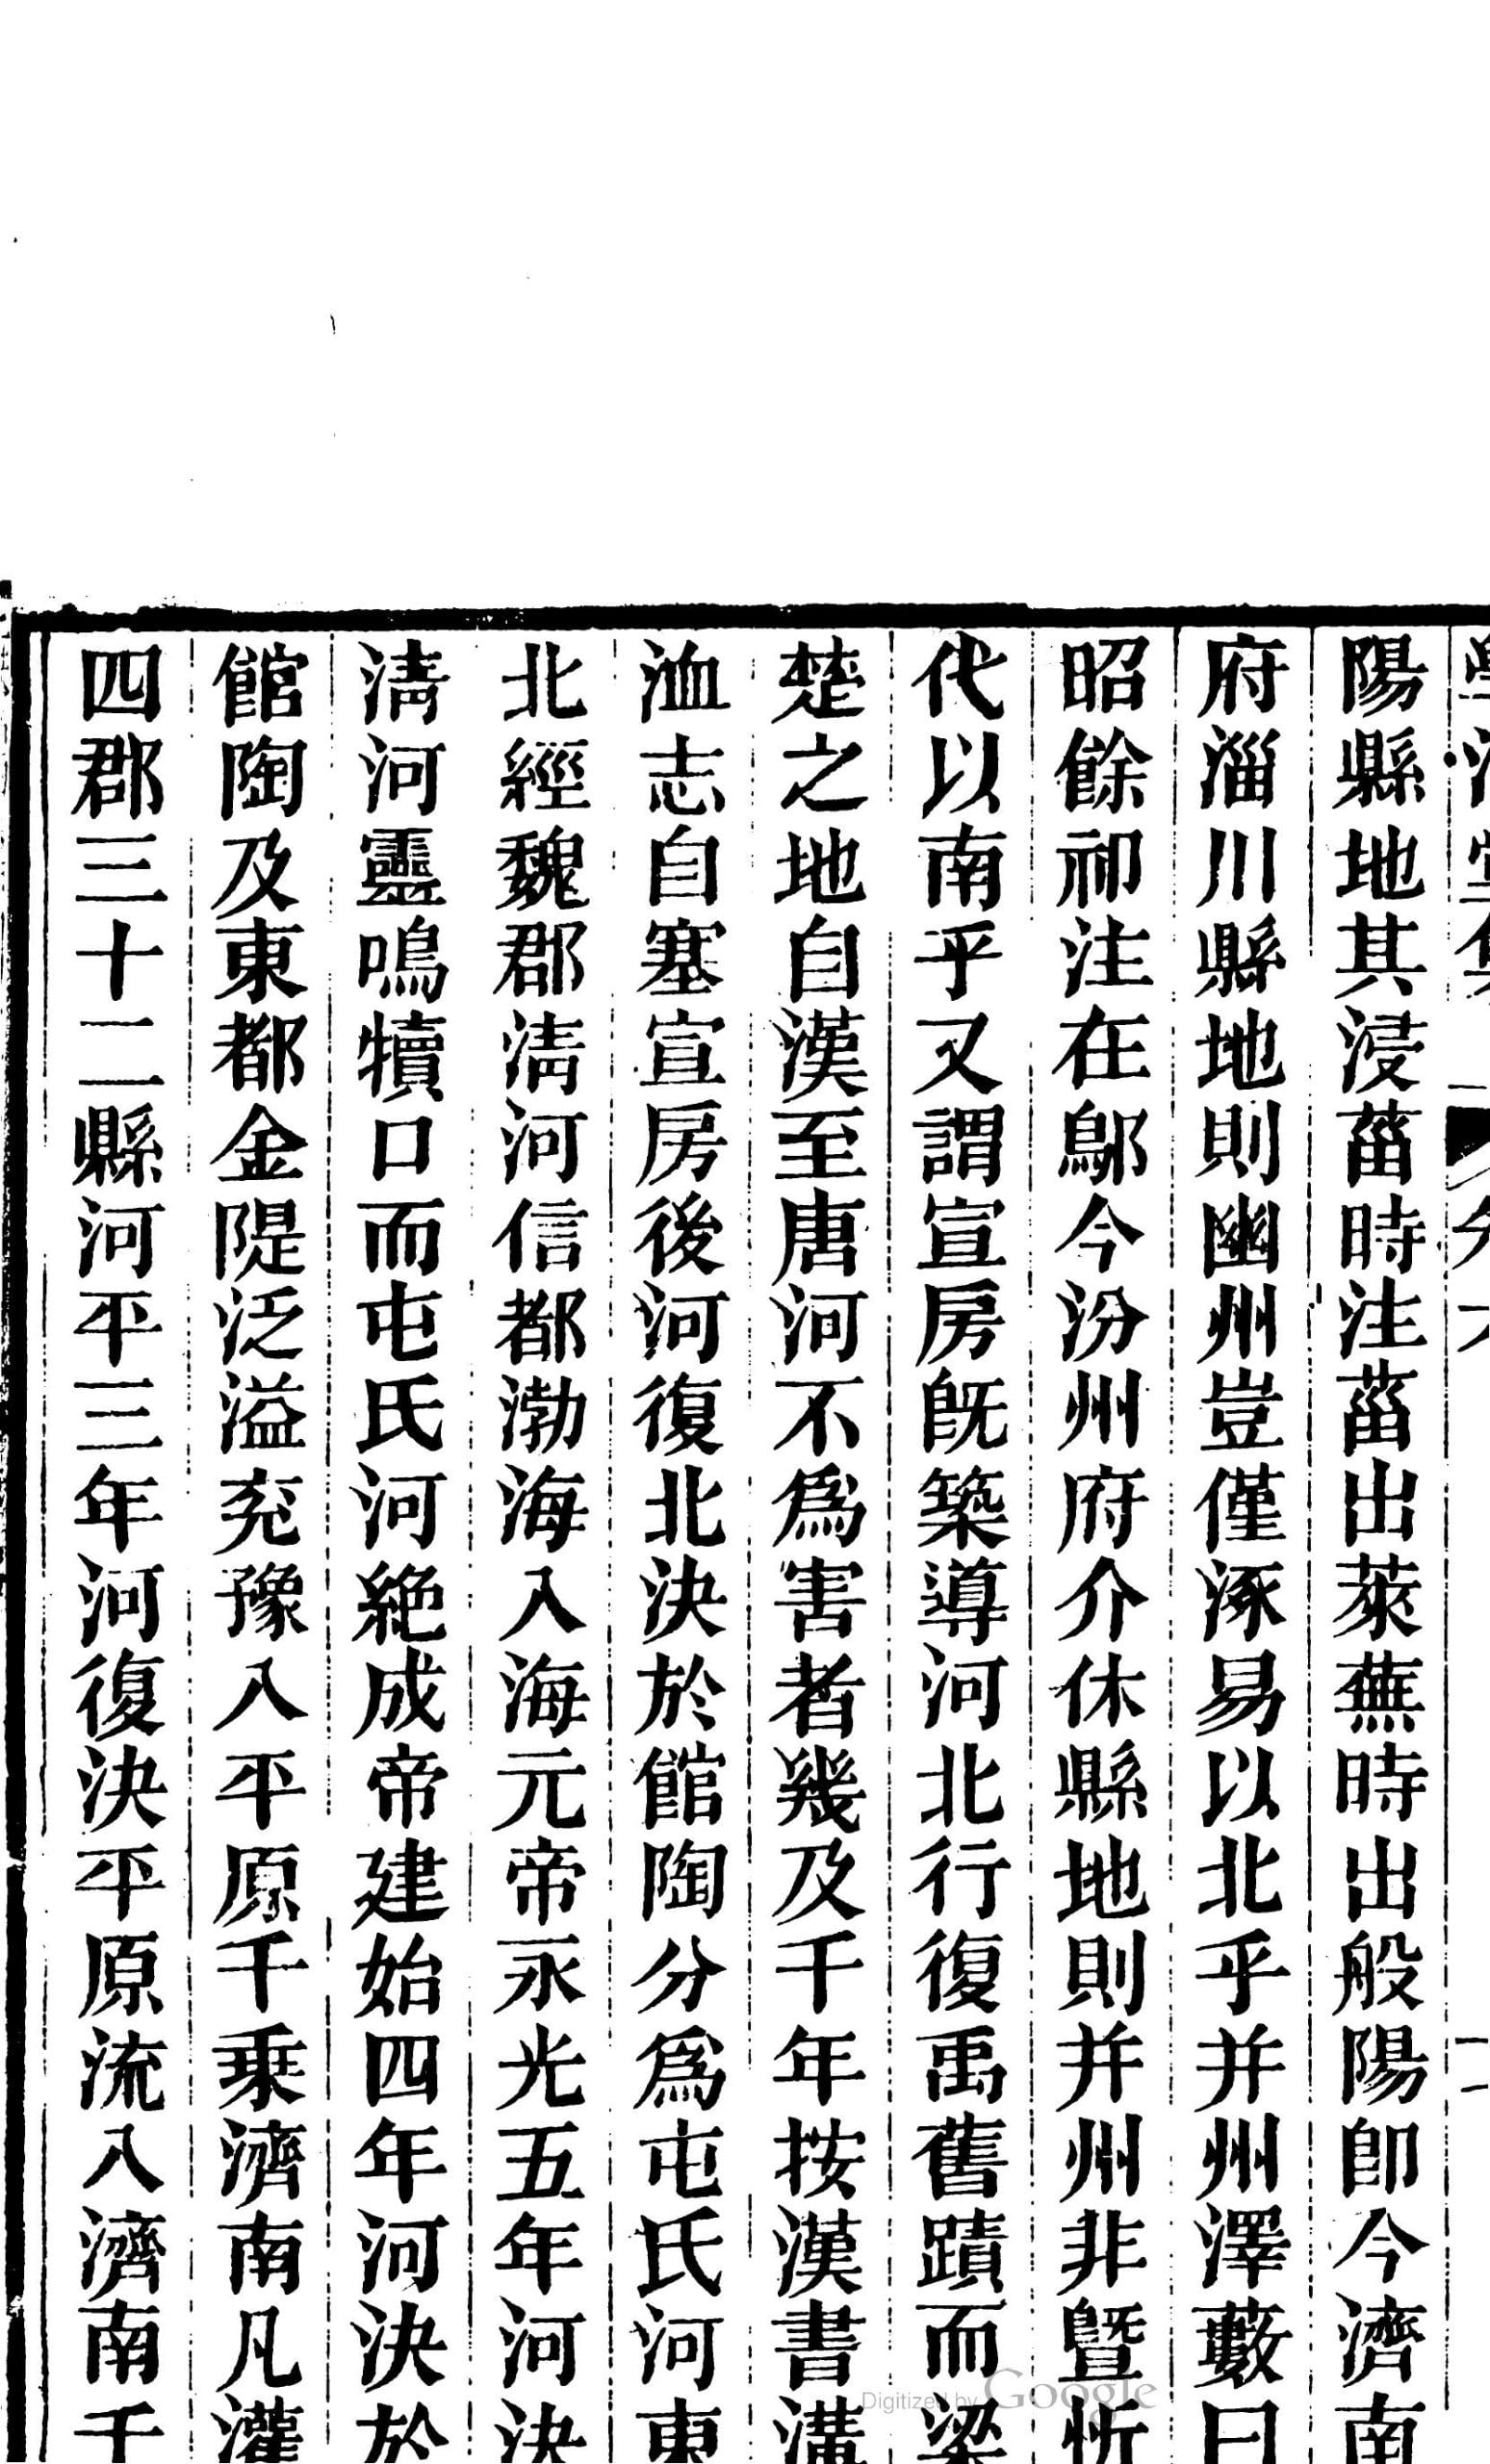 陽縣地其浸菑時注菑出萊蕪時出般陽卽今濟南
府淄川縣地則幽州豈僅涿易以北乎并州澤藪曰
昭餘祁注在鄔今汾州府介休縣地則并州非暨忻
代以南乎又謂宣房旣築導河北行復禹舊蹟而梁
楚之地自漢至唐河不爲害者幾及千年按漢書溝
洫志自塞宣房後河復北決於館陶分爲屯氏河東
北經魏郡淸河信都渤海入海元帝永光五年河決
淸河靈鳴犢口而屯氏河絶成帝建始四年河決於
館陶及東都金隄泛溢兖豫入平原千乗濟南凡灌
四郡三十二縣河平三年河復決平原流入濟南千
Digitized by Google